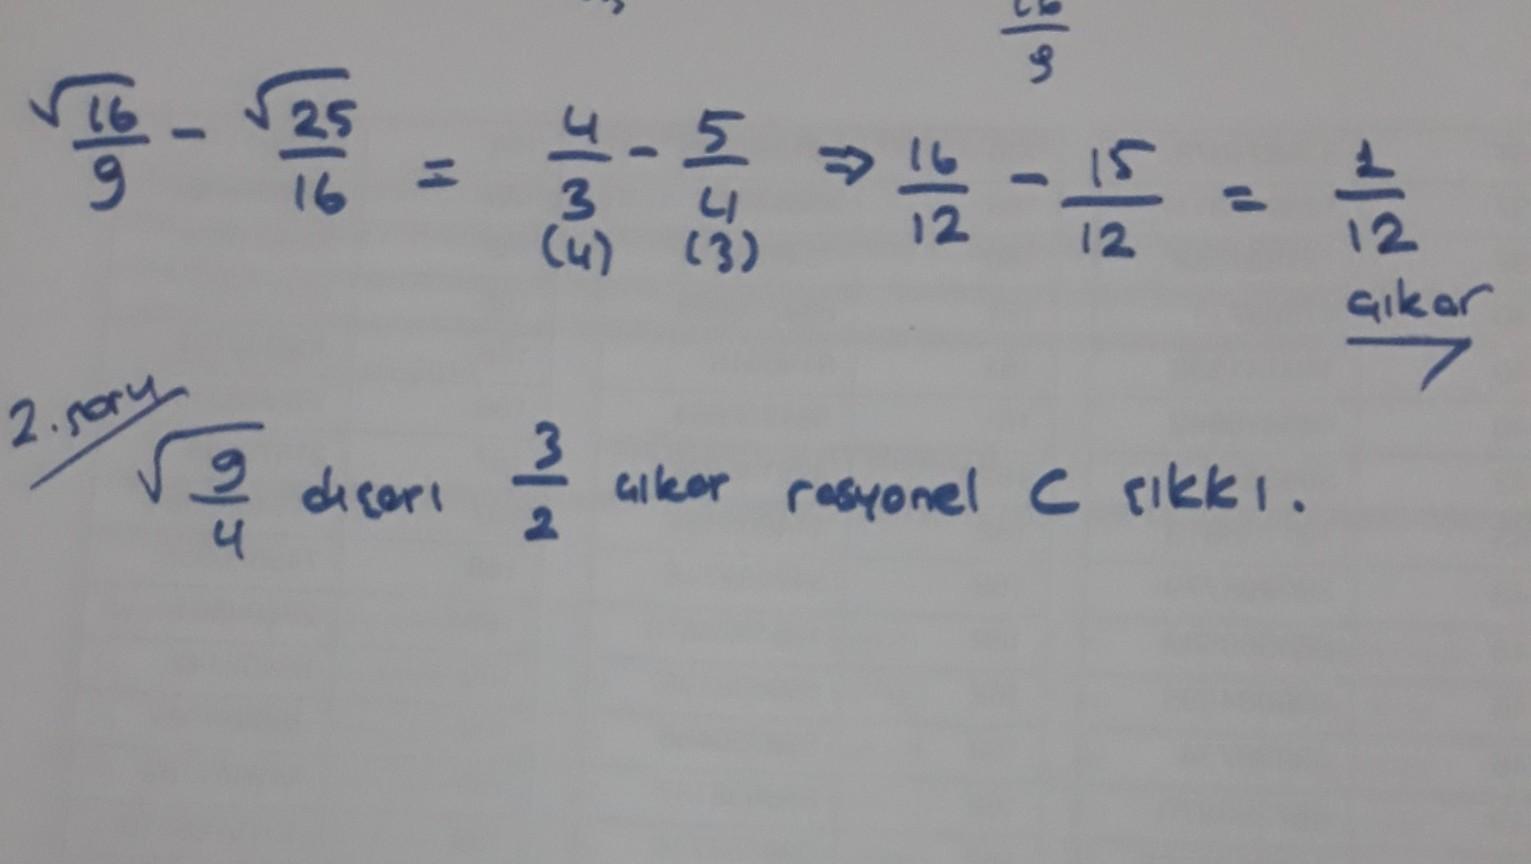 16/9
√16/9 - √25/16 = 4/3 - 5/4 ⇒ 16/12 - 15/12 = 1/12
(4) (3)
çıkar
2. soru
√9/4 dışarı 3/2 çıkar rasyonel C şıkkı.